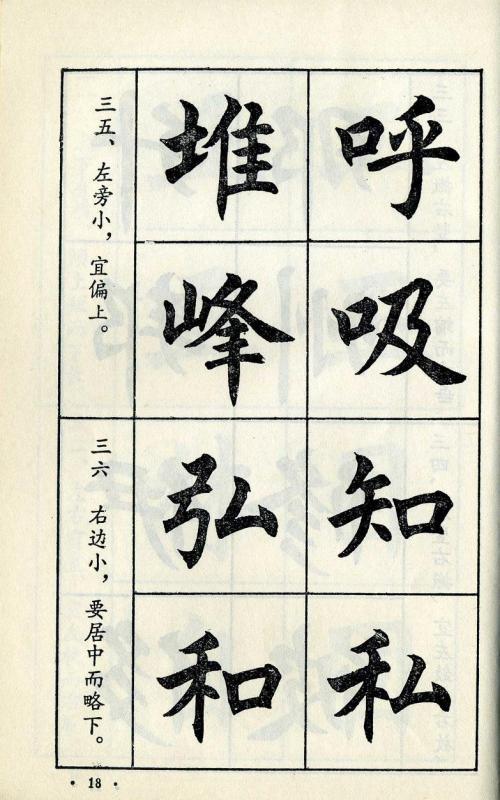 呼吸知私
堆峰弘和
三五、左旁小，宜偏上。
三六 右边小，要居中而略下。
· 18 ·